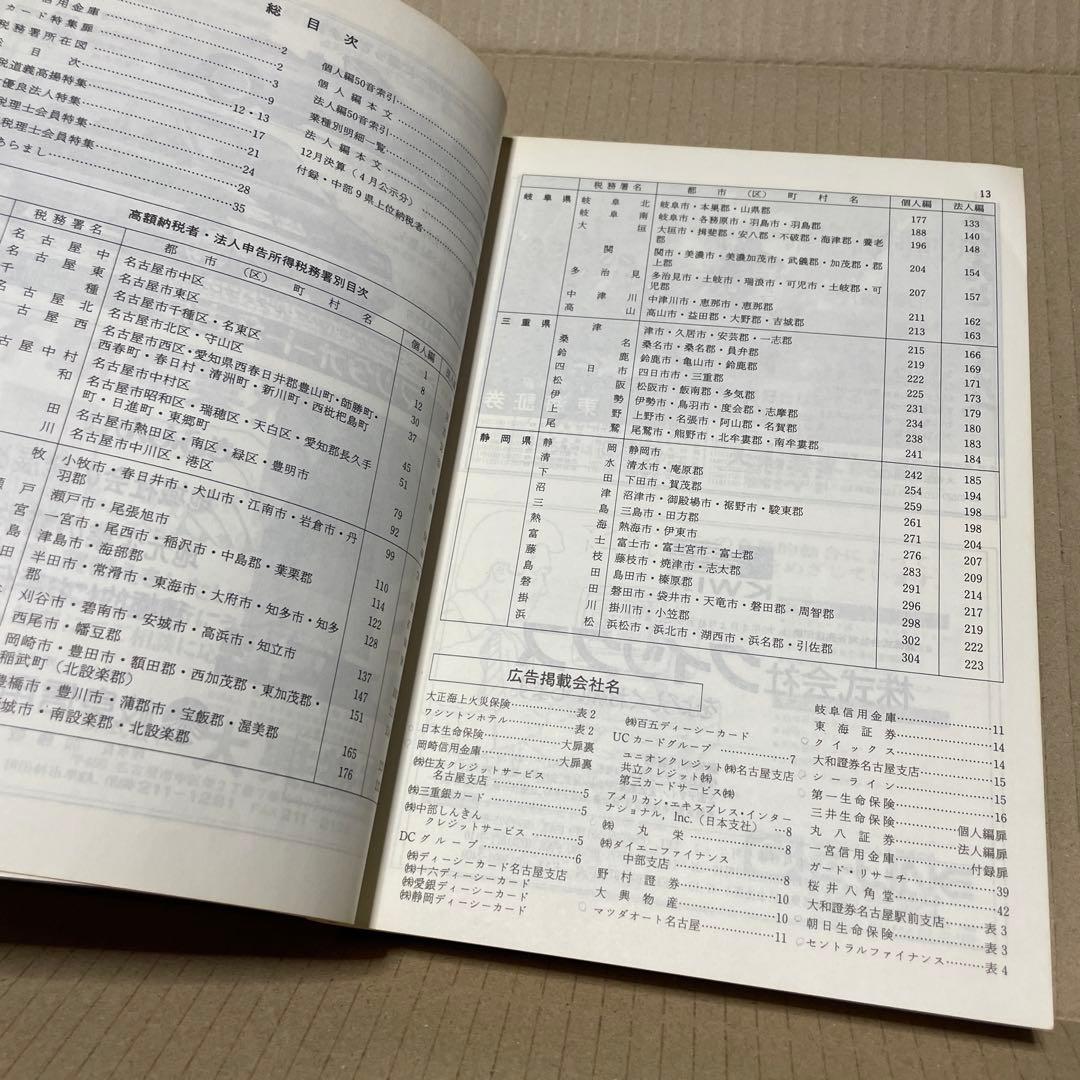 総目次
信用金庫
カード特集扉……2
税務署所在図……3
総目次……9
税道義高揚特集……12・13
優良法人特集……17
税理士会員特集……21
税理士会員特集……24
あらまし……28
35
個人編50音索引……
個人編本文……
法人編50音索引……
業種別明細一覧……
法人編本文……
12月決算(4月公示分)……
付録・中部9県上位納税者……
高額納税者・法人申告所得税務署別目次
税務署名 都市(区)町村名 個人編
名古屋中 名古屋市中区 1
名古屋東 名古屋市東区 8
千種 名古屋市千種区・名東区 12
名古屋北 名古屋市北区・守山区 30
名古屋西 名古屋市西区・愛知県西春日井郡豊山町・師勝町・
西春町・春日村・清洲町・新川町・西枇杷島町 37
名古屋中村 名古屋市中村区 45
和 名古屋市昭和区・瑞穂区・天白区・愛知郡長久手
町・日進町・東郷町 51
田 名古屋市熱田区・南区・緑区・豊明市 79
川 名古屋市中川区・港区 92
牧 小牧市・春日井市・犬山市・江南市・岩倉市・丹
羽郡 99
瀬戸 瀬戸市・尾張旭市 110
宮 一宮市・尾西市・稲沢市・中島郡・葉栗郡 114
島 津島市・海部郡 122
田 半田市・常滑市・東海市・大府市・知多市・知多
郡 128
刈谷市・碧南市・安城市・高浜市・知立市 137
西尾市・幡豆郡 147
岡崎市・豊田市・額田郡・西加茂郡・東加茂郡・
稲武町(北設楽郡) 151
豊橋市・豊川市・蒲郡市・宝飯郡・渥美郡 165
城市・南設楽郡・北設楽郡 176
13
税務署名 都市(区)町村名 個人編 法人編
岐阜県 岐阜北 岐阜市・本巣郡・山県郡 177 133
岐阜南 岐阜市・各務原市・羽島市・羽島郡 188 140
大垣 大垣市・揖斐郡・安八郡・不破郡・海津郡・養老
郡 196 148
関 関市・美濃市・美濃加茂市・武儀郡・加茂郡・郡
上郡 204 154
多治見 多治見市・土岐市・瑞浪市・可児市・土岐郡・可
児郡 207 157
中津川 中津川市・恵那市・恵那郡 211 162
高山 高山市・益田郡・大野郡・吉城郡 213 163
三重県 津 津市・久居市・安芸郡・一志郡 215 166
桑名 桑名市・桑名郡・員弁郡 219 169
鈴鹿 鈴鹿市・亀山市・鈴鹿郡 222 171
四日市 四日市市・三重郡 225 173
松阪 松阪市・飯南郡・多気郡 231 179
伊勢 伊勢市・鳥羽市・度会郡・志摩郡 234 180
上野 上野市・名張市・阿山郡・名賀郡 238 183
尾鷲 尾鷲市・熊野市・北牟婁郡・南牟婁郡 241 184
静岡県 静岡 静岡市 242 185
清水 清水市・庵原郡 254 194
下田 下田市・賀茂郡 259 198
沼津 沼津市・御殿場市・裾野市・駿東郡 261 198
三島 三島市・田方郡 271 204
熱海 熱海市・伊東市 276 207
富士 富士市・富士宮市・富士郡 283 209
藤枝 藤枝市・焼津市・志太郡 291 214
島田 島田市・榛原郡 296 217
磐田 磐田市・袋井市・天竜市・磐田郡・周智郡 298 219
掛川 掛川市・小笠郡 302 222
浜松 浜松市・浜北市・湖西市・浜名郡・引佐郡 304 223
広告掲載会社名
大正海上火災保険……表2
ワシントンホテル……表2
日本生命保険……大扉裏
岡崎信用金庫……大扉裏
㈱住友クレジットサービス
名古屋支店……5
㈱三重銀カード……5
㈱中部しんきん
クレジットサービス……5
DCグループ……6
㈱ディーシーカード名古屋支店
㈱十六ディーシーカード
㈱愛銀ディーシーカード
㈱静岡ディーシーカード
㈱百五ディーシーカード
UCカードグループ……7
ユニオンクレジット㈱名古屋支店
共立クレジット㈱
第三カードサービス㈱
アメリカン・エキスプレス・インター
ナショナル, Inc.(日本支社)…8
㈱丸栄……8
㈱ダイエーファイナンス
中部支店……8
野村證券……10
大興物産……10
マツダオート名古屋……11
岐阜信用金庫……11
東海証券……14
クイックス……14
大和證券名古屋支店……15
シーライン……15
第一生命保険……16
三井生命保険……個人編扉
丸八証券……法人編扉
一宮信用金庫……付録扉
ガード・リサーチ……39
桜井八角堂……42
大和證券名古屋駅前支店……表3
朝日生命保険……表3
セントラルファイナンス……表4